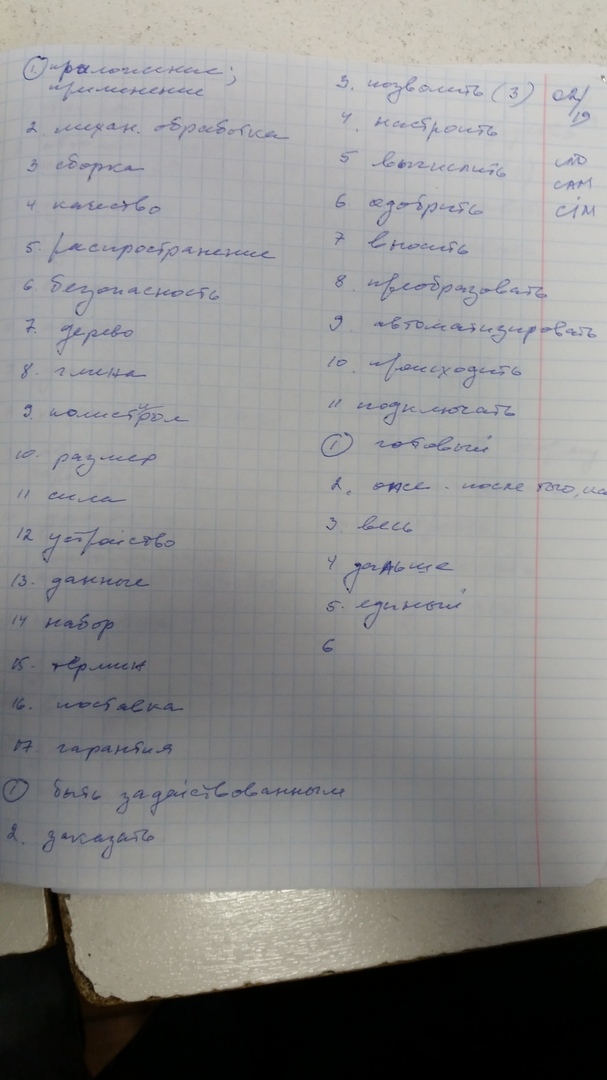 1. приложение;
применение
2. механ. обработка
3 сборка
4 качество
5. распространение
6 безопасность
7. дерево
8. глина
9. полистирол
10. размер
11 сила
12 устройство
13. данные
14 набор
15. термин
16. поставка
17. гарантия
1 быть задействованным
2. заказать
3. позволить (3)
4. настроить
5 вычислить
6 одобрить
7 вносить
8. преобразовать
9. автоматизировать
10. происходить
11 подключать
1 готовый
2. после того,
3. весь
4 дальше
5. единый
6
02/
19
CAM
CIM